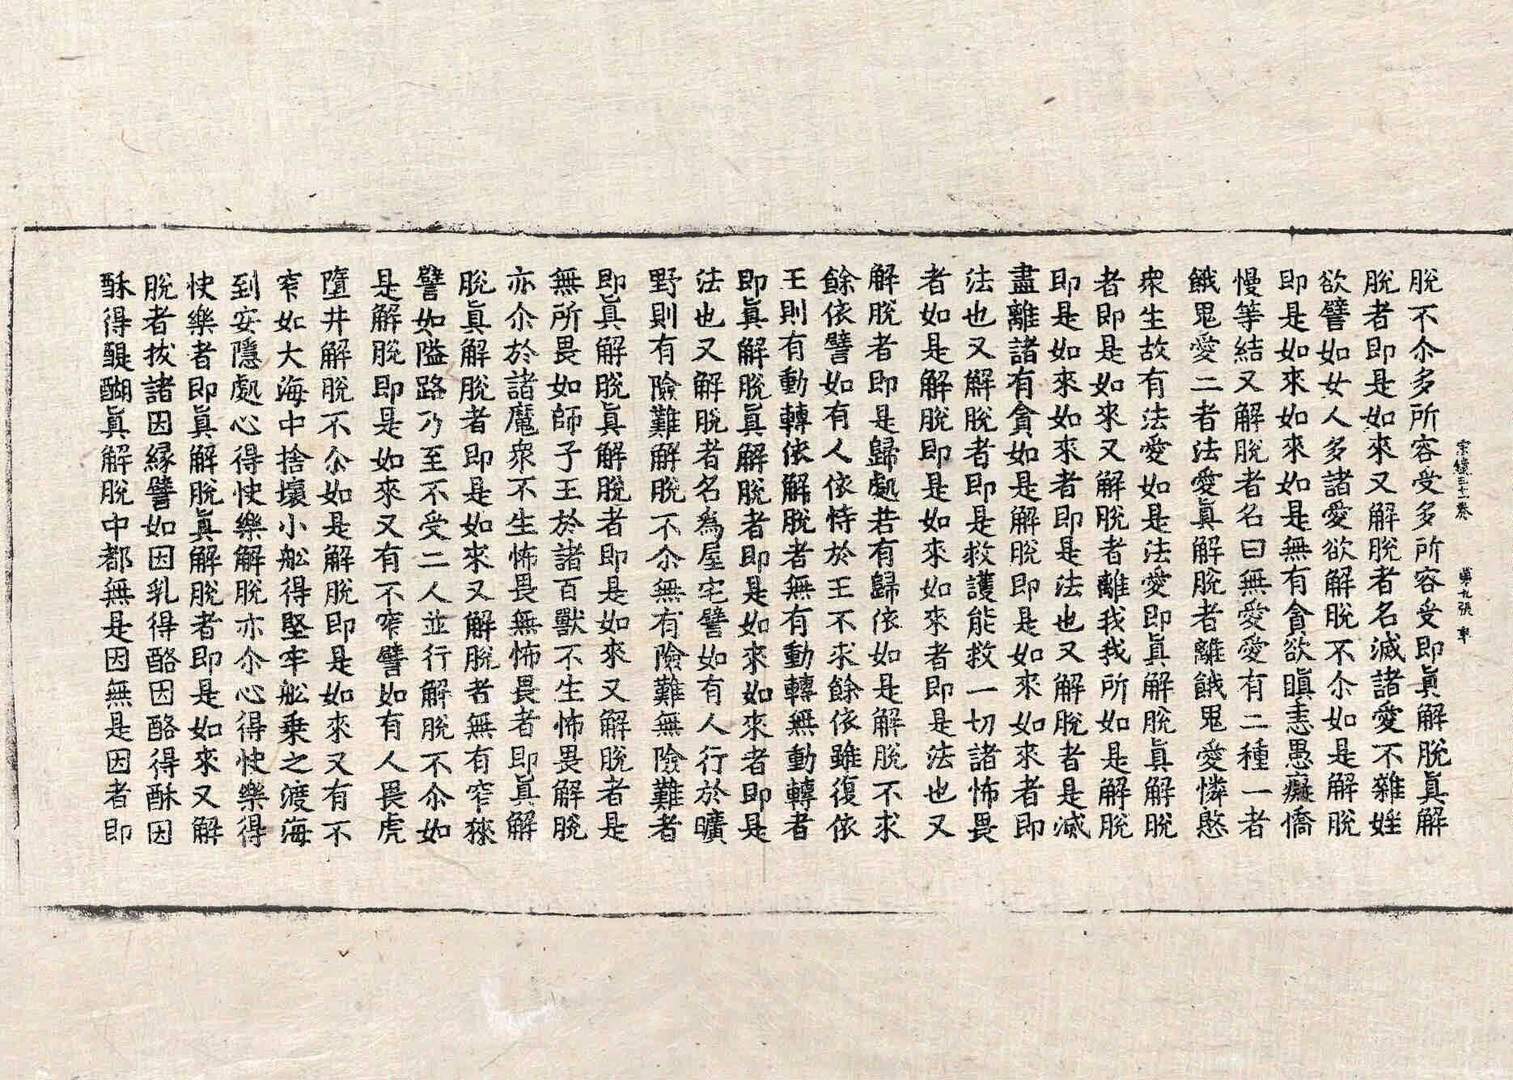 宗鏡三十一卷　第九張　車
脫不尒多所容受多所容受即眞解脫眞解
脫者即是如來又解脫者名滅諸愛不雜婬
欲譬如女人多諸愛欲解脫不尒如是解脫
即是如來如來如是無有貪欲瞋恚愚癡憍
慢等結又解脫者名曰無愛愛有二種一者
餓鬼愛二者法愛眞解脫者離餓鬼愛憐愍
衆生故有法愛如是法愛即眞解脫眞解脫
者即是如來又解脫者離我我所如是解脫
即是如來如來者即是法也又解脫者是滅
盡離諸有貪如是解脫即是如來如來者即
法也又解脫者即是救護能救一切諸怖畏
者如是解脫即是如來如來者即是法也又
解脫者即是歸處若有歸依如是解脫不求
餘依譬如有人依恃於王不求餘依雖復依
王則有動轉依解脫者無有動轉無動轉者
即眞解脫眞解脫者即是如來如來者即是
法也又解脫者名爲屋宅譬如有人行於曠
野則有險難解脫不尒無有險難無險難者
即眞解脫眞解脫者即是如來又解脫者是
無所畏如師子王於諸百獸不生怖畏解脫
亦尒於諸魔衆不生怖畏無怖畏者即眞解
脫眞解脫者即是如來又解脫者無有窄狹
譬如隘路乃至不受二人並行解脫不尒如
是解脫即是如來又有不窄譬如有人畏虎
墮井解脫不尒如是解脫即是如來又有不
窄如大海中捨壞小舩得堅牢舩乗之渡海
到安隱處心得快樂解脫亦尒心得快樂得
快樂者即眞解脫眞解脫者即是如來又解
脫者拔諸因縁譬如因乳得酪因酪得酥因
酥得醍醐眞解脫中都無是因無是因者即